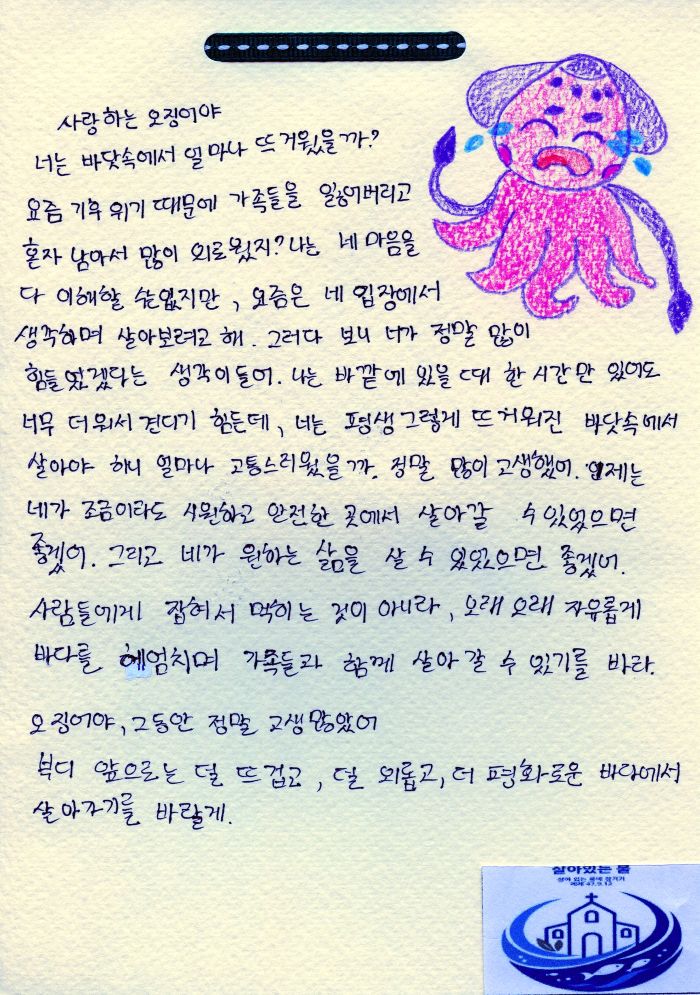 사랑하는 오징어야
너는 바닷속에서 얼마나 뜨거웠을까?
요즘 기후 위기 때문에 가족들을 잃어버리고
혼자 남아서 많이 외로웠지? 나는 네 마음을
다 이해할 순 없지만, 요즘은 네 입장에서
생각하며 살아보려고 해. 그러다 보니 너가 정말 많이
힘들었겠다는 생각이 들어. 나는 바깥에 있을 때 한 시간만 있어도
너무 더워서 견디기 힘든데, 너는 평생 그렇게 뜨거워진 바닷속에서
살아야 하니 얼마나 고통스러웠을까. 정말 많이 고생했어. 이제는
네가 조금이라도 시원하고 안전한 곳에서 살아갈 수 있었으면
좋겠어. 그리고 네가 원하는 삶을 살 수 있었으면 좋겠어.
사람들에게 잡혀서 먹히는 것이 아니라, 오래오래 자유롭게
바다를 헤엄치며 가족들과 함께 살아갈 수 있기를 바라.
오징어야, 그동안 정말 고생 많았어
부디 앞으로는 덜 뜨겁고, 덜 외롭고, 더 평화로운 바다에서
살아가기를 바랄게.
살아있는 물
에제 47,9.12